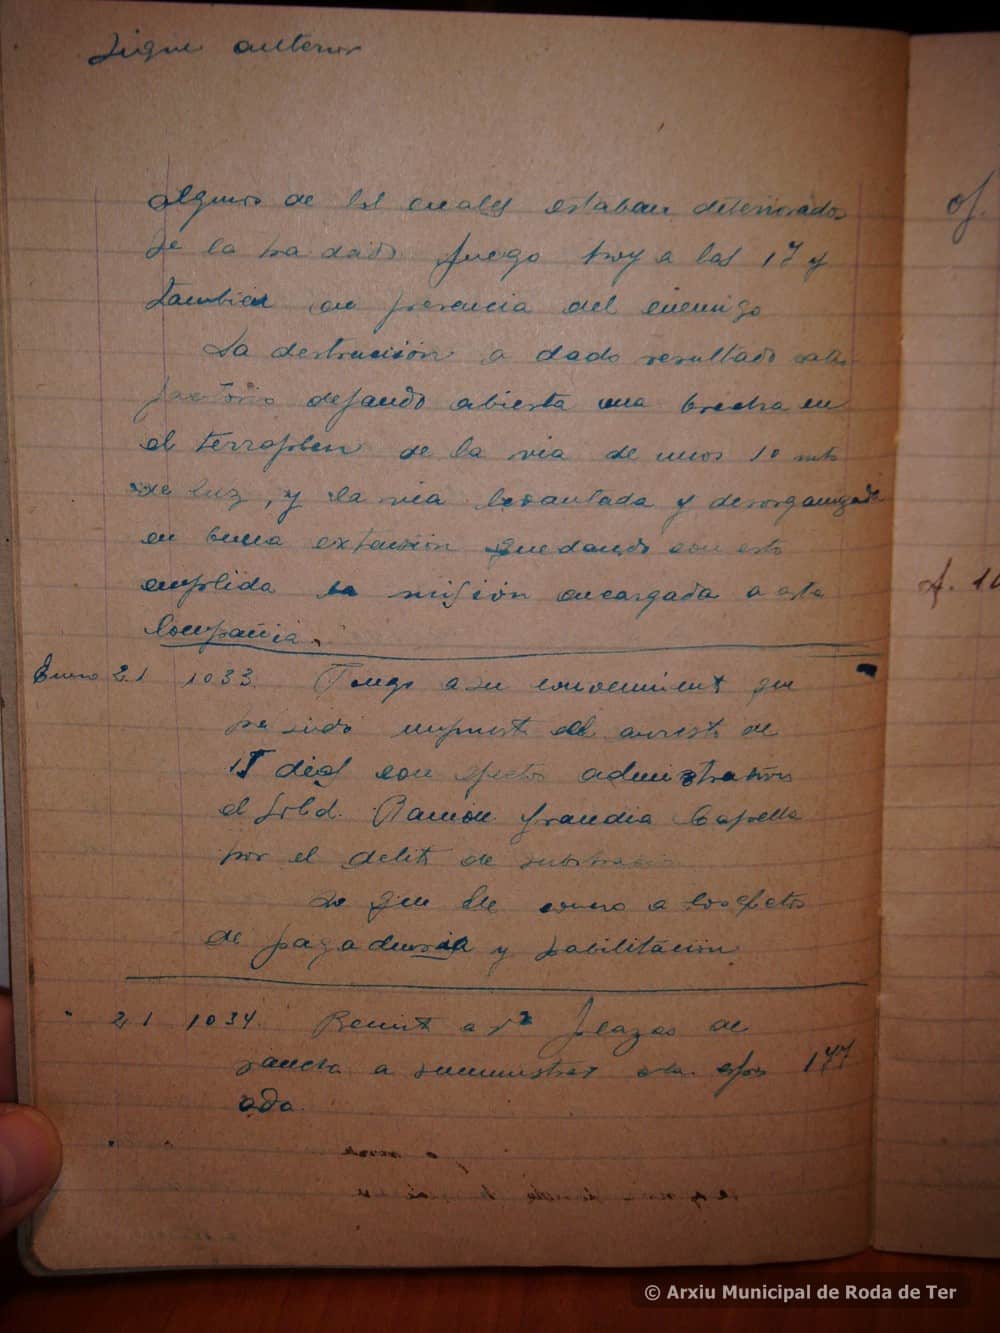 Sigue anterior
algunos de los cuales estaban deteriorados
se la ha dado fuego hoy a las 17 y
tambien en presencia del enemigo
La destrucción a dado resultado satis-
factorio dejando abierta una brecha en
el terraplen de la via de unos 10 mts
de luz, y la via levantada y desorganizada
en buena extensión quedando con esto
cumplida la misión encargada a esta
Compañia.
Enero 21 1033. Tengo a su conocimient que
ha sido impuest el arresto de
15 dias con efectos administrativos
el Sold. Ramón Grandia Capella
por el delit de
Lo que le comu a los efectos
de pagaduria y habilitación
" 21 1034. Remit a Vª plazas de
rancho a suministrar dia 177
ada.
© Arxiu Municipal de Roda de Ter